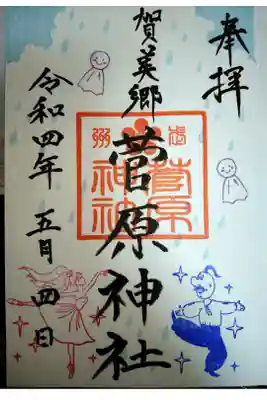 奉拝
賀美郷
菅原神社
令和四年 五月 四日
菅原
神社